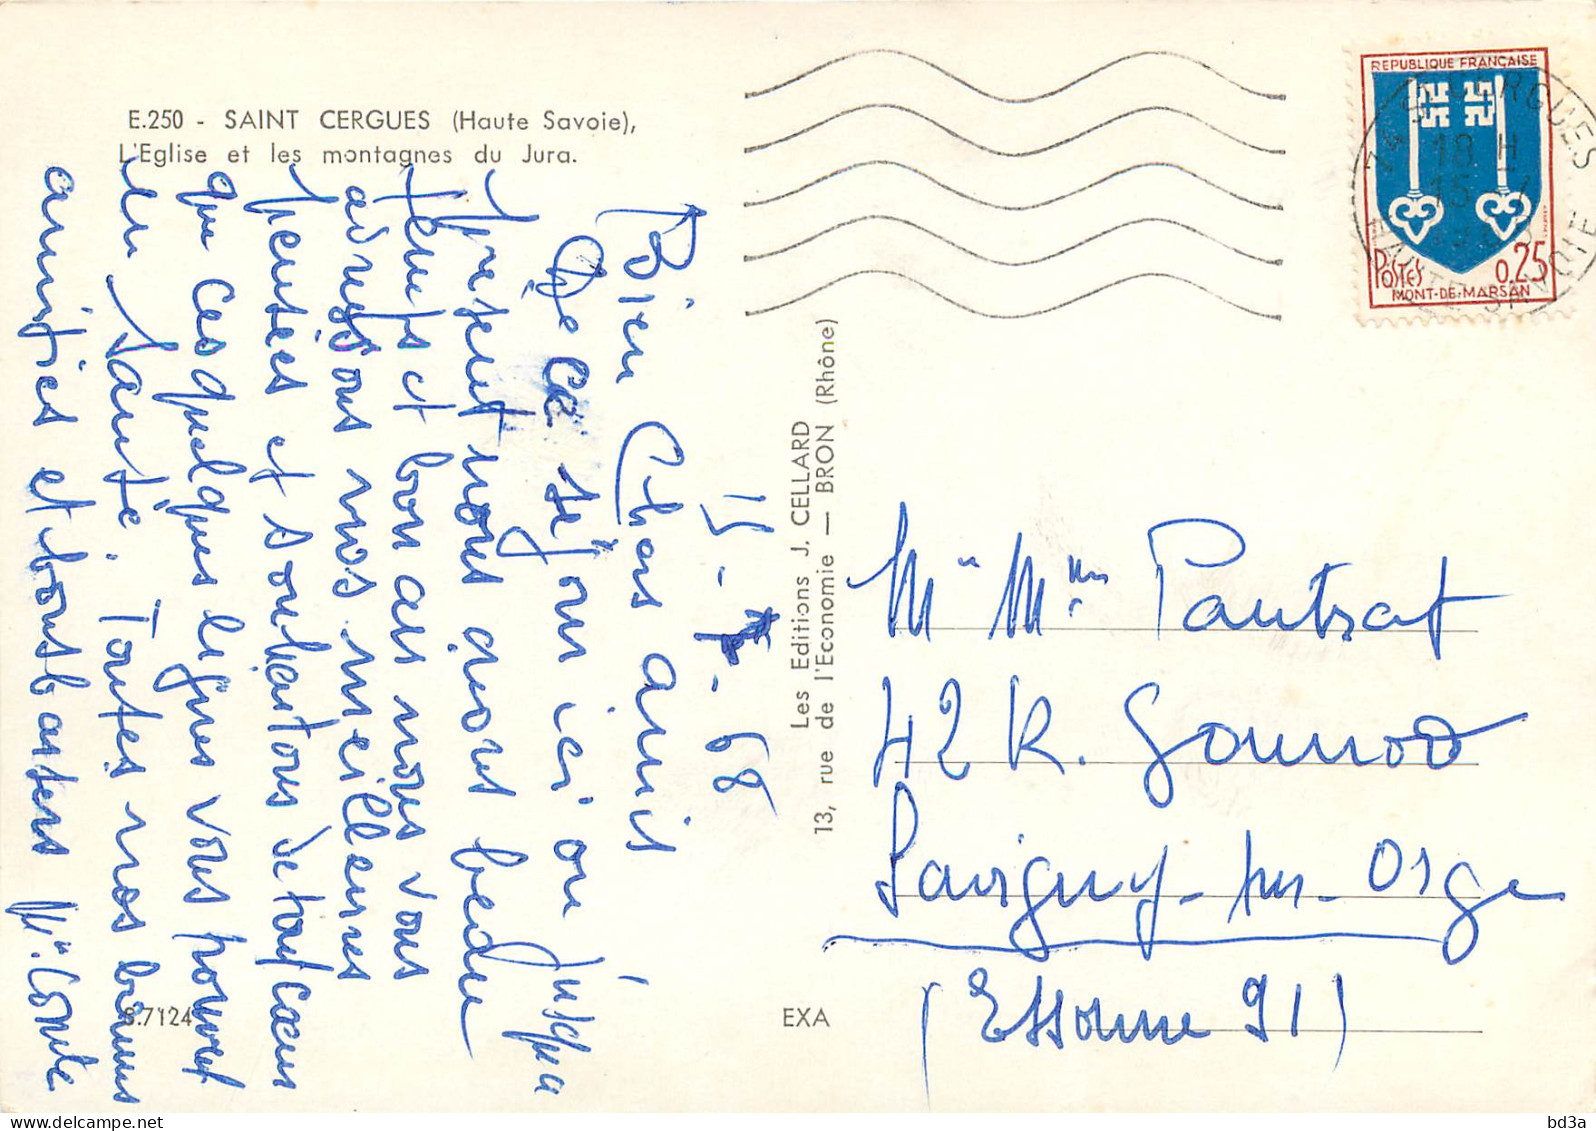 E.250 - SAINT CERGUES (Haute Savoie),
L'Eglise et les montagnes du Jura.
15 - 7 - 68
Bien Chers amis
De ce séjour ici ou jusqu'a
présent nous avons beau
temps et bon air nous vous
adressons nos meilleures
pensées et souhaitons de tout cœur
que ces quelques lignes vous trouvent
en Santé. Toutes nos bonnes
amitiés et bons baisers Mme Comte
Les Editions J. CELLARD
13, rue de l'Economie — BRON (Rhône)
S.7124
EXA
REPUBLIQUE FRANÇAISE
POSTES 0,25
MONT-DE-MARSAN
74 ST CERGUES
18 H
15 - 7
HAUTE SAVOIE
Mr Mme Pautrat
42 R. Gounod
Savigny-sur-Orge
(Essonne 91)
bd3a